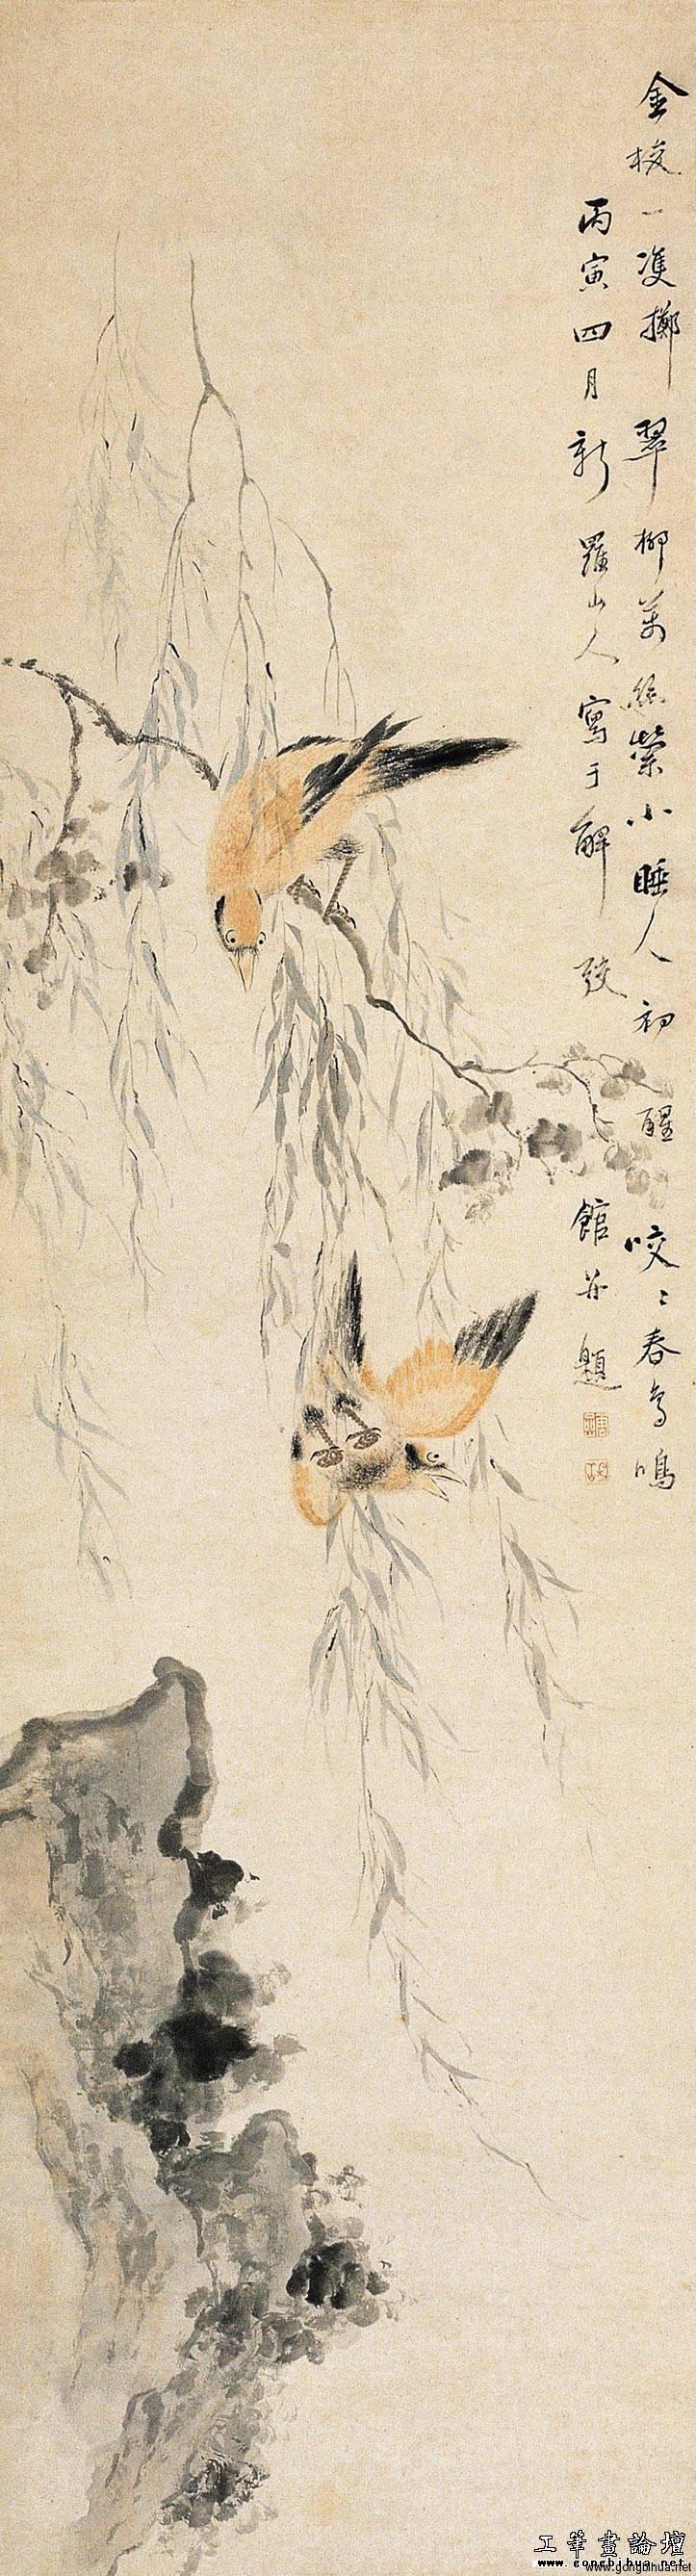 金梭一雙擲翠柳萬絲縈小睡人初醒咬〻春鳥鳴
丙寅四月新羅山人寫于解弢館并題
工筆畫論壇
www.gongbihua.net
www.gongbihua.net